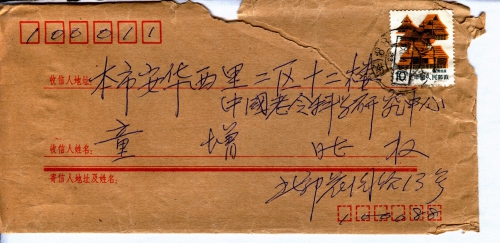 100011
收信人地址:本市安华西里二区十二楼
中國老令科学研究中心
收信人姓名:童增 收
寄信人地址及姓名:
13号
100088
10
中国人民邮政